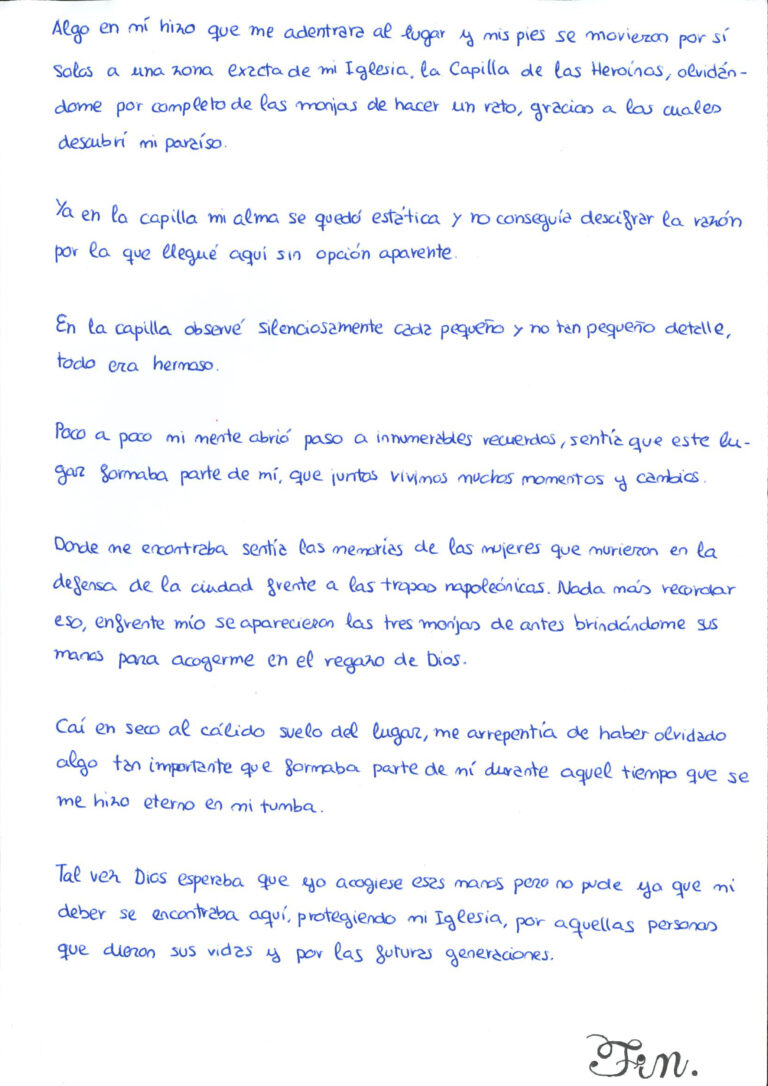 Algo en mí hizo que me adentrara al lugar y mis pies se movieron por sí
solos a una zona exacta de mi Iglesia, la Capilla de las Heroínas, olvidán-
dome por completo de las monjas de hacer un rato, gracias a las cuales
descubrí mi paraíso.
Ya en la capilla mi alma se quedó estática y no conseguía descifrar la razón
por la que llegué aquí sin opción aparente.
En la capilla observé silenciosamente cada pequeño y no tan pequeño detalle,
todo era hermoso.
Poco a poco mi mente abrió paso a innumerables recuerdos, sentía que este lu-
gar formaba parte de mí, que juntos vivimos muchos momentos y cambios.
Donde me encontraba sentía las memorias de las mujeres que murieron en la
defensa de la ciudad frente a las tropas napoleónicas. Nada más recordar
eso, enfrente mío se aparecieron las tres monjas de antes brindándome sus
manos para acogerme en el regazo de Dios.
Caí en seco al cálido suelo del lugar, me arrepentía de haber olvidado
algo tan importante que formaba parte de mí durante aquel tiempo que se
me hizo eterno en mi tumba.
Tal vez Dios esperaba que yo acogiese esas manos pero no pude ya que mi
deber se encontraba aquí, protegiendo mi Iglesia, por aquellas personas
que dieron sus vidas y por las futuras generaciones.
Fin.